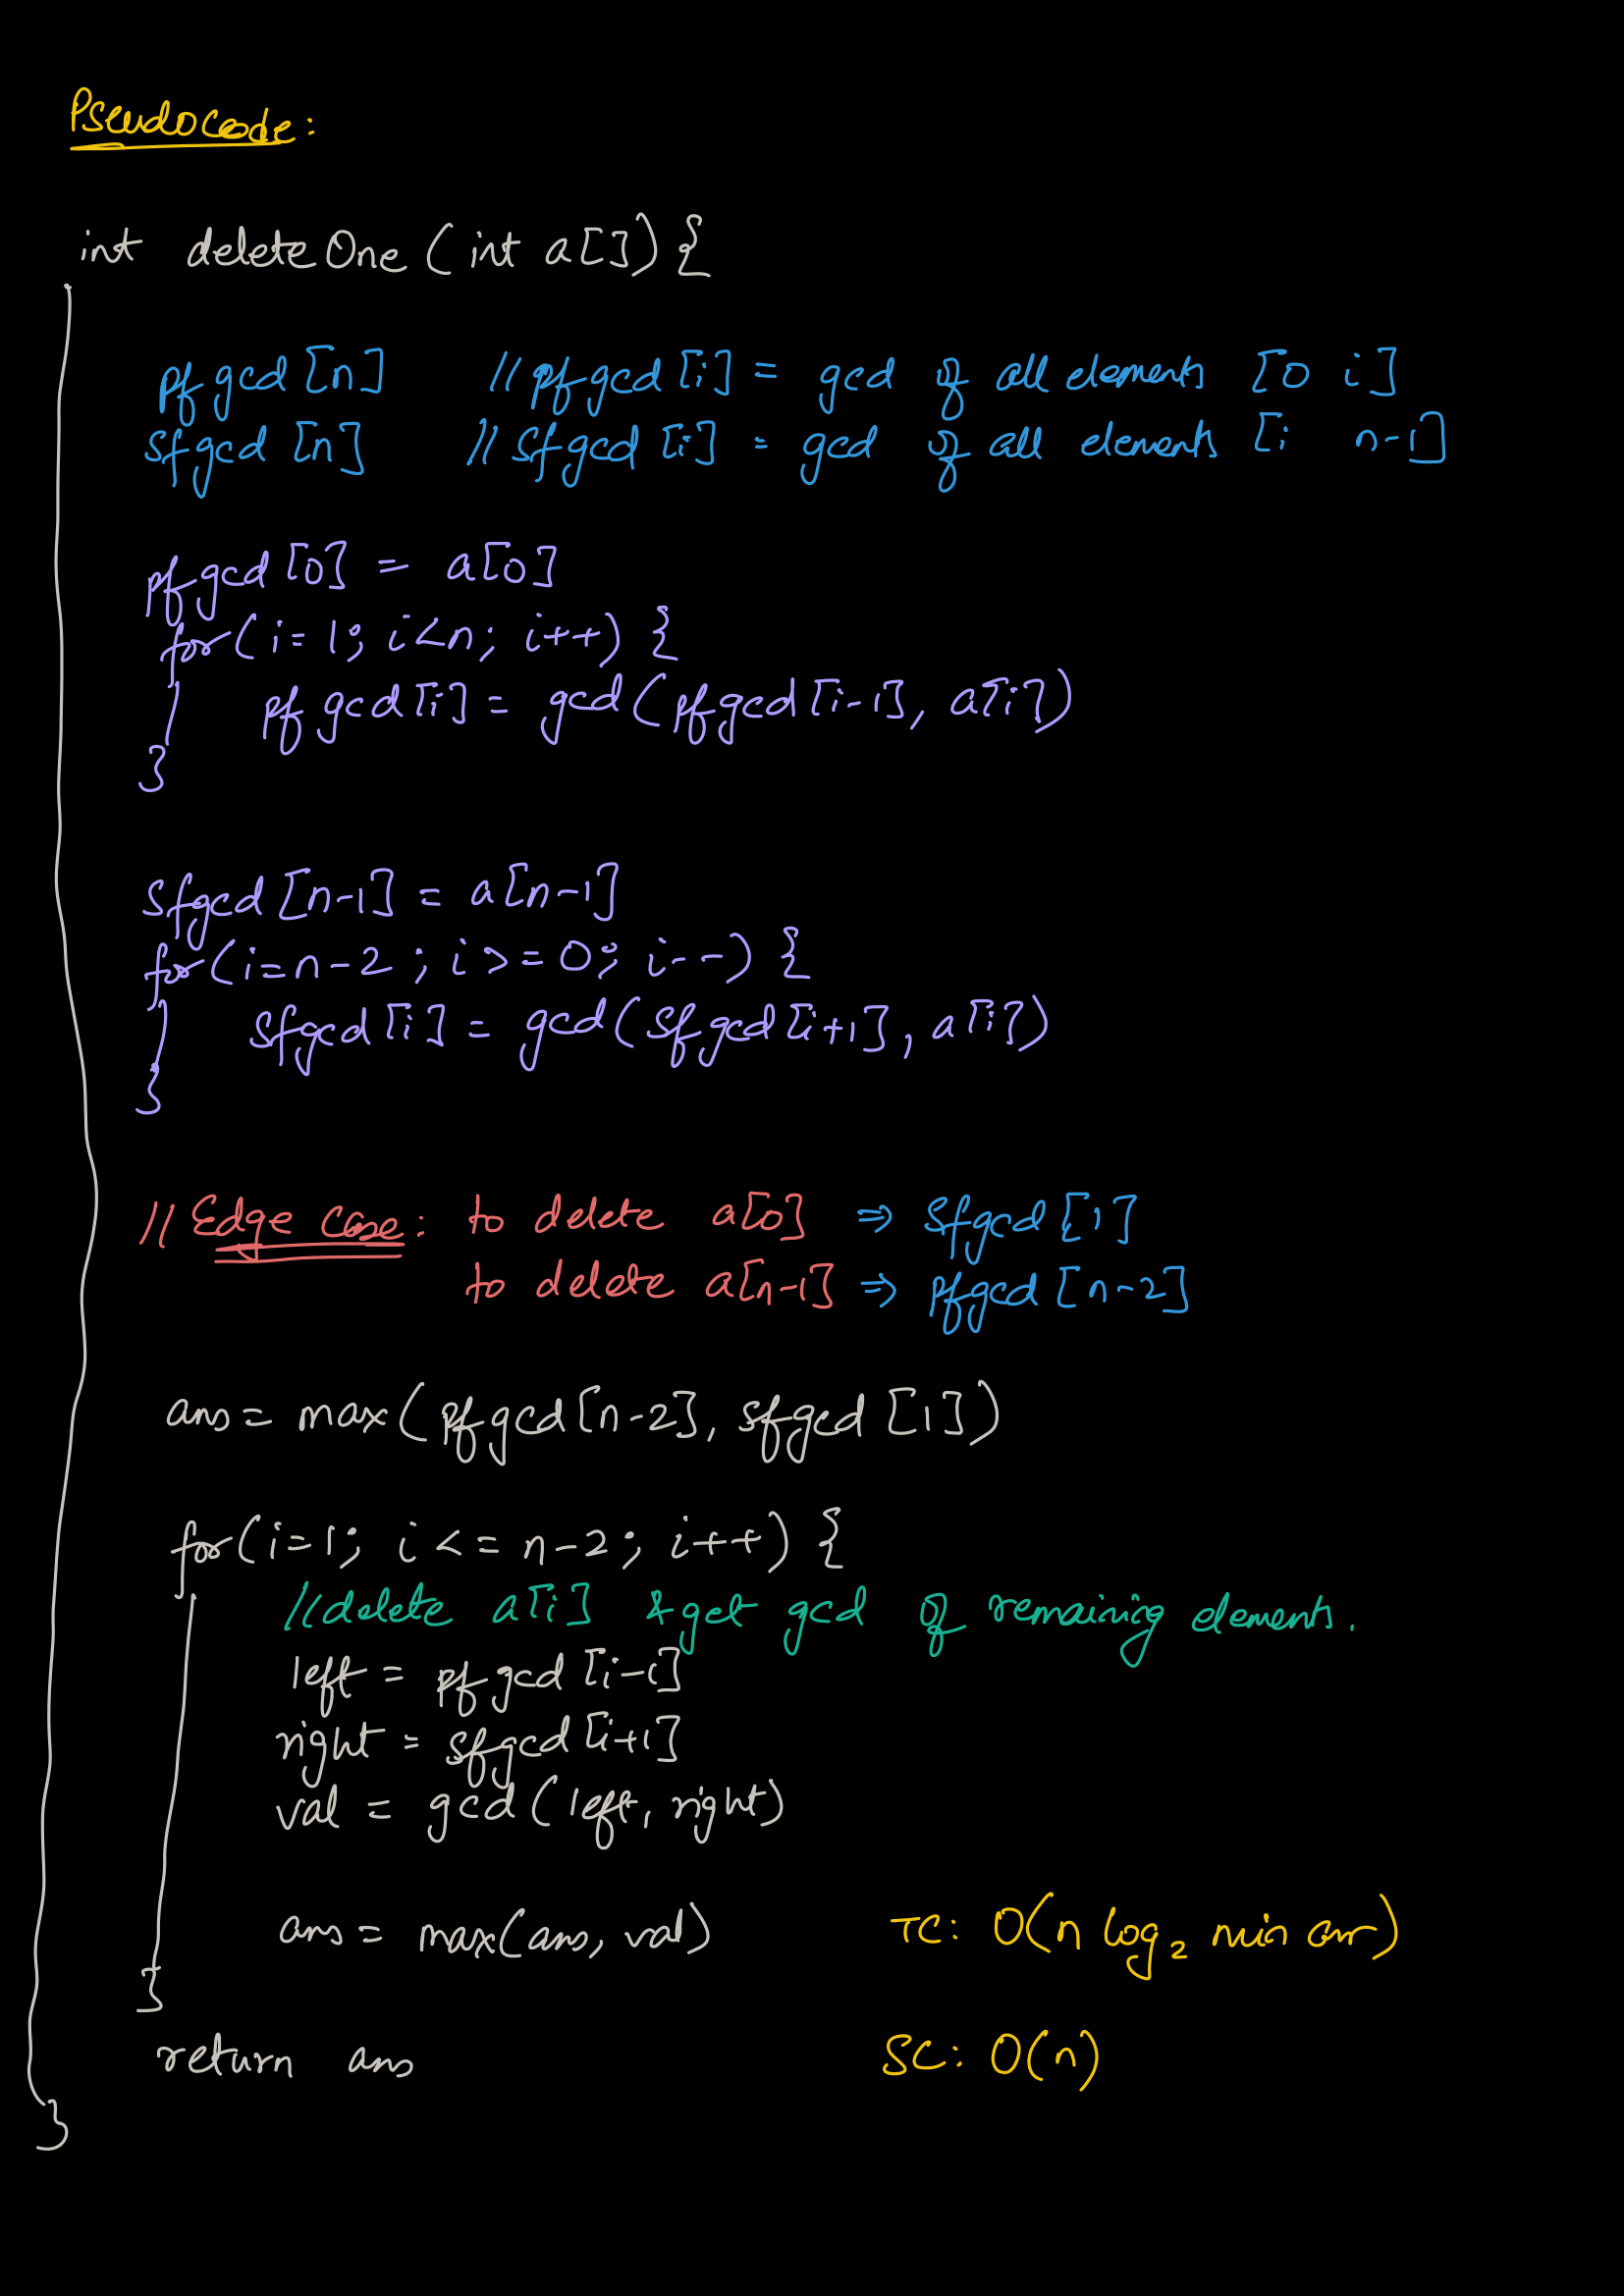 Pseudocode:
int deleteOne (int a[]) {
pfgcd [n] // pfgcd [i] = gcd of all elements [0 i]
sfgcd [n] // sfgcd [i] = gcd of all elements [i n-1]
pfgcd [0] = a[0]
for(i=1; i<n; i++) {
pfgcd[i] = gcd(pfgcd[i-1], a[i])
}
sfgcd [n-1] = a[n-1]
for(i=n-2; i>=0; i--) {
sfgcd[i] = gcd(sfgcd[i+1], a[i])
}
// Edge Case: to delete a[0] ⇒ sfgcd [1]
to delete a[n-1] ⇒ pfgcd [n-2]
ans = max(pfgcd[n-2], sfgcd [1])
for(i=1; i<=n-2; i++) {
//delete a[i] & get gcd of remaining elements.
left = pfgcd [i-1]
right = sfgcd [i+1]
val = gcd(left, right)
ans = max(ans, val) TC: O(n log₂ min arr)
}
return ans SC: O(n)
}